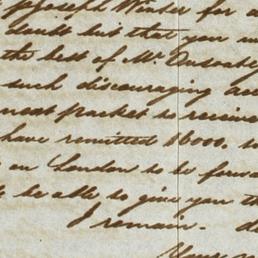 for a
doubt but that you
the best of Mr.
such discouraging acc
most packet to receive
have remitted 1600.
on London to be forwa
be able to give you th
I remain.